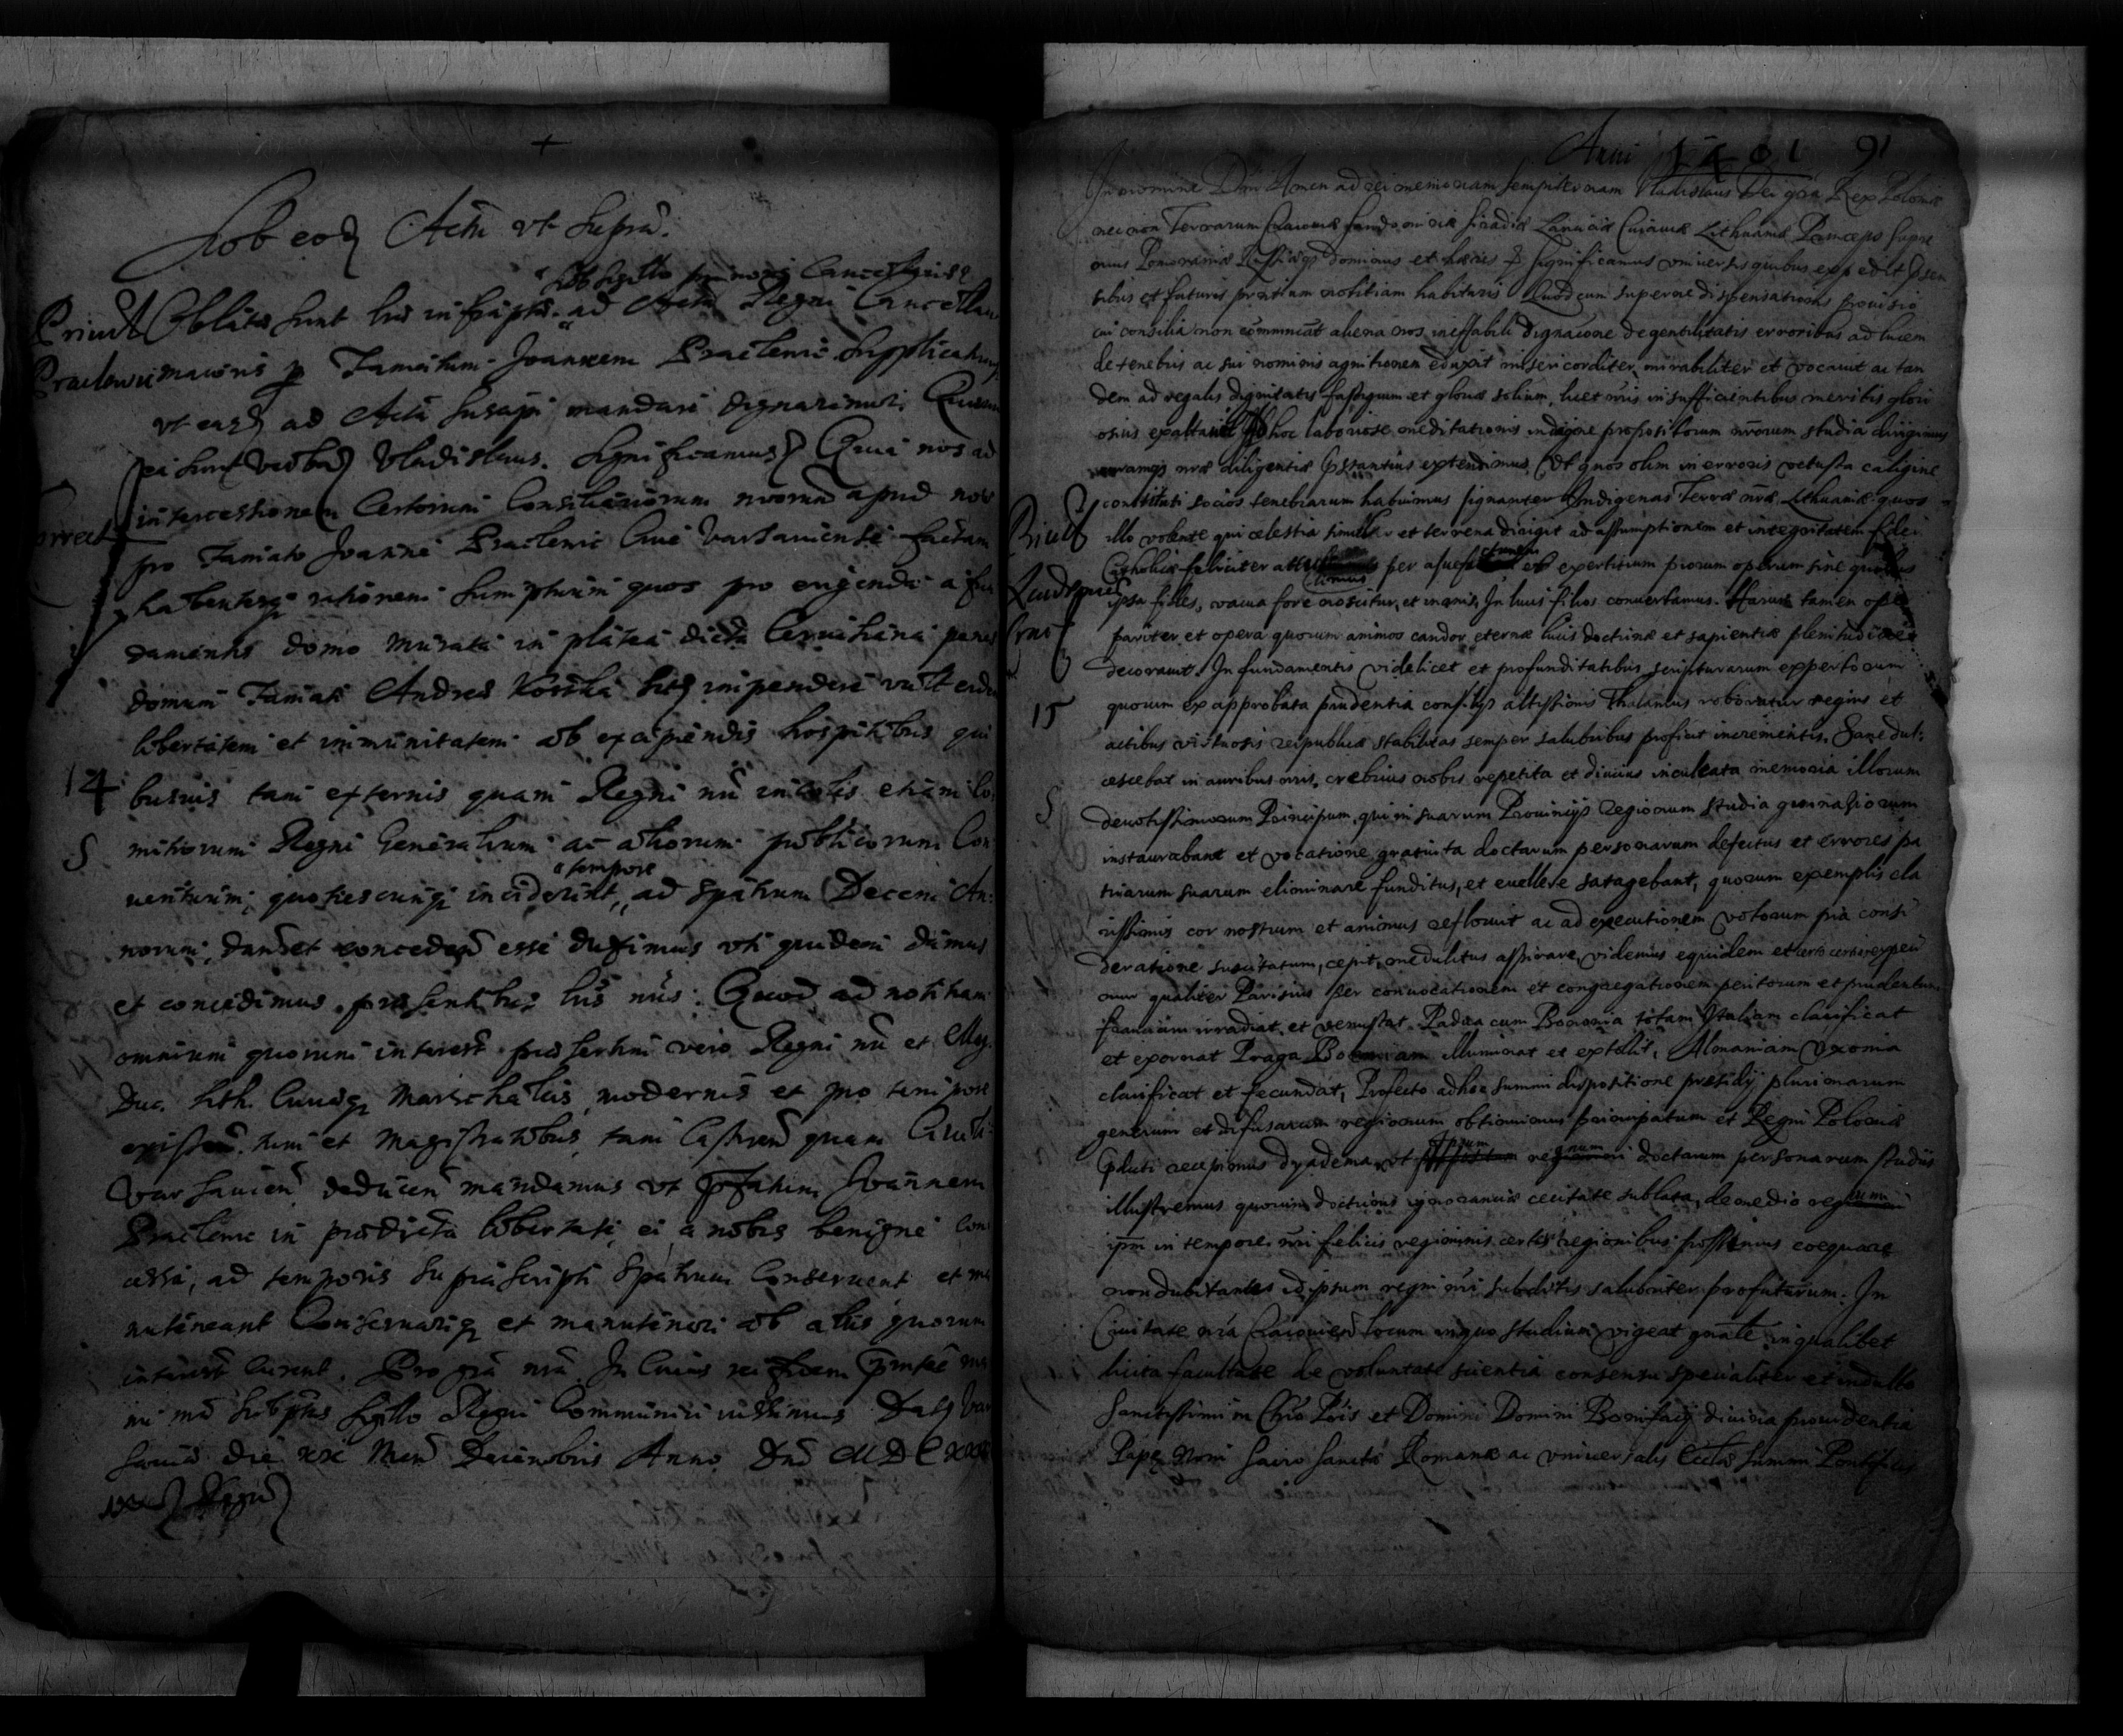 +
Sub eod Actu vt supra.
sub sigillo minoris Cancellariae
Oblatae sunt lrae infrascriptae ad Acta Regni Cancellariae
maioris p Famatum Joannem supplicatumq
vt easd ad Acta suscipi mandare dignaremur. Quarum
ea sunt verba Vladislaus. Significamus Quia nos ad
intercessionem Certorum Consiliariorum nrorum apud nos
pro Famato Joanne Ciue Varsauiensi factam
habentesq rationem sumptuum quos pro erigenda a fun
damentis domo murata in platea dicta penes
domum Famati Andreae sita impendere vult eidem
libertatem et immunitatem ab excipiendis hospitibus qui
14
busuis tam externis quam Regni nri incolis etiam Co
S
mitiorum Regni Generalium ac aliorum publicorum Con
tempore
uentuum, quotiescunq inciderint, ad spatium Decem An
norum, dand et concedend esse duximus vti quidem damus
et concedimus praesentibus lris nris. Quod ad notitiam
omnium quorum interest praesertim vero Regni nri et Mag.
Duc. Lith. Curiaeq Marschalcis, modernis et pro tempore
existen. tum et Magistratibus, tam Castren quam Ciuili
Varsauien deducen mandamus vt pfatum Joannem
in praedicta libertate, ei a nobis benigne con
cessa, ad temporis supra scripti spatium conseruent et ma
nuteneant Conseruariq et manuteneri ab alijs quorum
interest curent. Pro gra nra. In Cuius rei fidem pntes ma
nu nra subscriptas sigillo Regni Communiri iussimus. Dat Var
sauiae die xix Men Decembris Anno Dni M D C
Anni 1401 91
In nomine Dni Amen ad rei memoriam sempiternam Vladislaus Dei gra Rex Poloniae
nec non Terrarum Cracouiae Sandomiriae Siradiae Lanciciae Cuiauiae Lithuaniae Princeps Supre
mus Pomeraniae Russiaeq dominus et haeres Significamus vniuersis quibus expedit psen
tibus et futuris pntium notitiam habituris Quod cum supernae dispensationis prouisio
cui consilia non communicat aliena nos ineffabili dignatione de gentilitatis erroribus ad lucem
de tenebris ac sui nominis agnitionem eduxit misericorditer, mirabiliter et vocauit ac tan
dem ad regalis dignitatis fastigium et gloriae solium, licet nris insufficientibus meritis glori
osius exaltauit Ad hoc laboriosae meditationis indagine propositorum nrorum studia dirigimus
curamq nrae diligentiae Cstantius extendimus. Vt quos olim in erroris vetusta caligine
constituti socios tenebrarum habuimus signanter Indigenas Terrae nrae Lithuaniae quos
illo volente qui celestia simul et terrena dirigit ad assumptionem et integritatem fidei
Catholicae feliciter per et exercitium piorum operum sine quibus
ipsa fides, vacua fore noscitur, et inanis, In lucis filios conuertamus. Harum tamen ope
pariter et opera quorum animos candor eternae lucis doctrinae et sapientiae plenitudine
decorauit. In fundamentis videlicet et profunditatibus scripturarum expertorum
15
quorum ex approbata prudentia consilijs altissimis Thalamus roboratur regius et
actibus virtuosis reipublicae stabilitas semper salubribus proficit incrementis. Sane dul:
cescebat in auribus nris, crebrius nobis repetita et diutius inculcata memoria illorum
S
deuotissimorum Principum, qui in suarum Prouincijs regionum studia gymnasiorum
instaurabant et vocatione gratuita doctarum personarum defectus et errores pa
triarum suarum eliminare funditus, et euellere satagebant, quorum exemplis cla
rissimis cor nostrum et animus refloruit ac ad executionem votorum pia consi
deratione suscitatum, cepit, medulitus aspirare, videmus equidem et certo certius experi
mur qualiter Parisius per conuocationem et congregationem peritorum et prudentum
franciam irradiat et venustat. Padua cum Bononia totam Italiam clarificat
et exornat Praga Boemiam illuminat et extollit, Almaniam Vxonia
clarificat et fecundat, Profecto ad hoc summi dispositione praesidij plurimarum
gentium et difusarum regionum obtinuimus principatum et Regni Poloniae
Cpluti recepimus dyadema, vt ipsum regnum doctarum personarum studijs
illustremus quorum doctrinis ignorantiae cecitate sublata, de medio regnum
ipm in tempore nri felicis regiminis certis regionibus possimus coequare
non dubitantes id ipsum regni nri subditis salubriter profuturum. In
Ciuitate nra Cracouien locum in quo studium vigeat gnale in qualibet
licita facultate de voluntate scientia consensu specialiter et indulto
Sanctissimi in Chro Pris et Domini Domini Bonifacij diuina prouidentia
Pape Noni Sacro Sanctae Romanae ac vniuersalis Ecclae Summi Pontificis